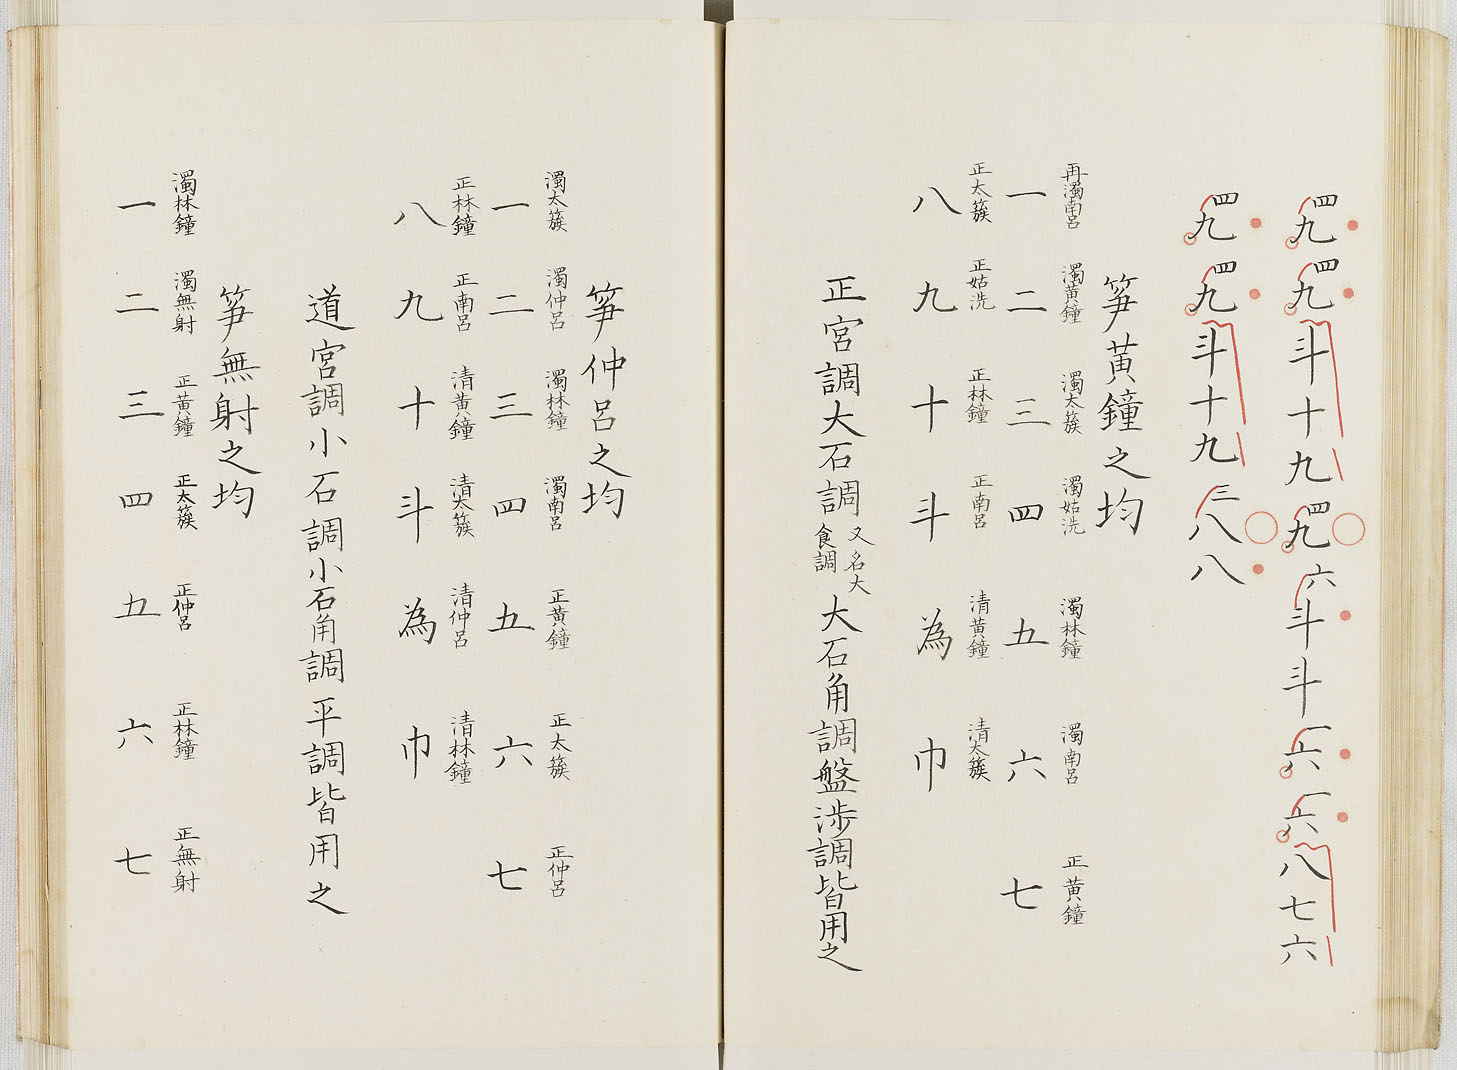 四九四九斗十九四九六斗斗一六一六八七六
四九四九斗十九三八八
箏黃鐘之均
再濁南呂 濁黃鐘 濁太簇 濁姑洗 濁林鐘 濁南呂 正黃鐘
一二三四五六七
正太簇 正姑洗 正林鐘 正南呂 清黃鐘 清太簇
八九十斗為巾
正宮調大石調又名大食調大石角調盤涉調皆用之
箏仲呂之均
濁太簇 濁仲呂 濁林鐘 濁南呂 正黃鐘 正太簇 正仲呂
一二三四五六七
正林鐘 正南呂 清黃鐘 清太簇 清仲呂 清林鐘
八九十斗為巾
道宮調小石調小石角調平調皆用之
箏無射之均
濁林鐘 濁無射 正黃鐘 正太簇 正仲呂 正林鐘 正無射
一二三四五六七